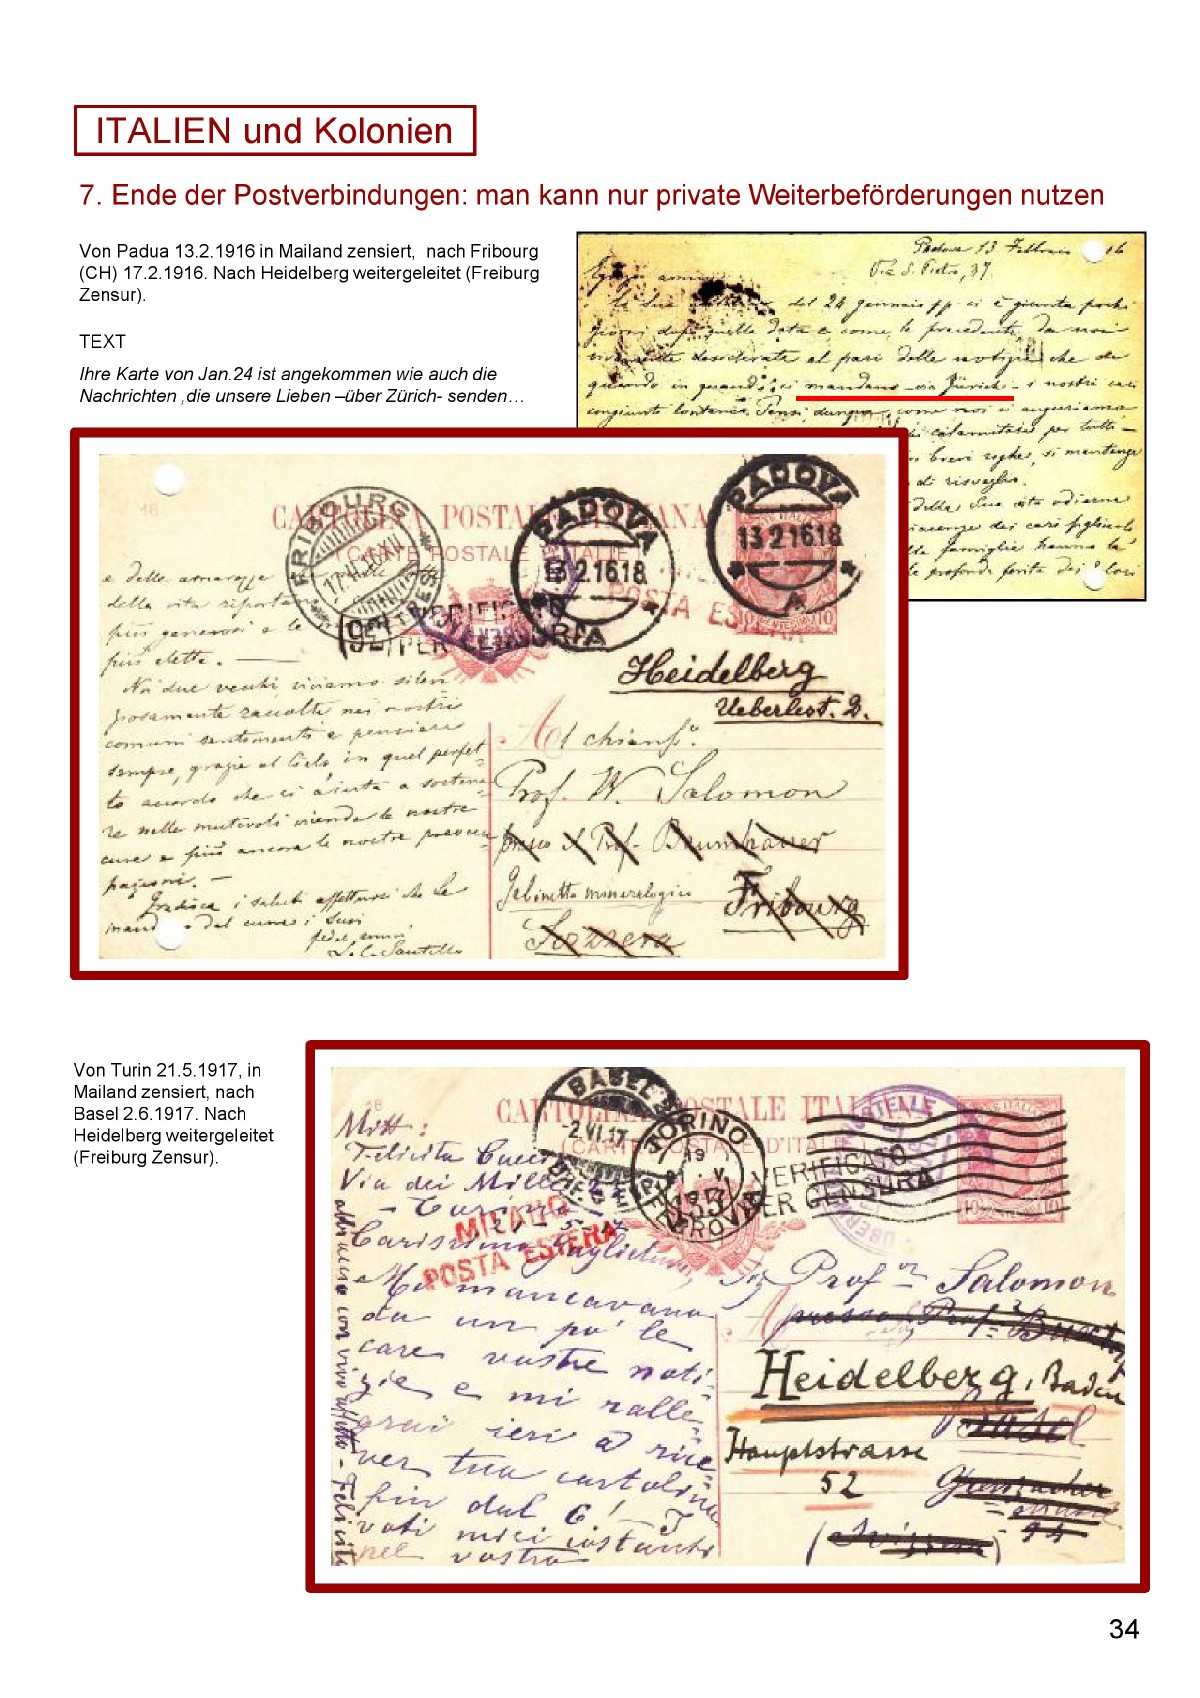 ITALIEN und Kolonien
7. Ende der Postverbindungen: man kann nur private Weiterbeförderungen nutzen
Von Padua 13.2.1916 in Mailand zensiert, nach Fribourg
(CH) 17.2.1916. Nach Heidelberg weitergeleitet (Freiburg
Zensur).
TEXT
Ihre Karte von Jan.24 ist angekommen wie auch die
Nachrichten ,die unsere Lieben –über Zürich- senden…
Padova 13 Febbraio 16
Via S. Pietro, 37.
del 24 gennaio pp. ci è giunta pochi
giorni dopo quella data e come le precedenti, da noi
desiderata al pari delle notizie che da
quando in quando ci mandano – via Zurich – i nostri cari
congiunti lontani. Pensi dunque come noi ci auguriamo
calamitate per tutti –
brevi righe, si mantenga
di risveglio.
della Sua vita odierna
dei cari figliuoli
le famiglie hanno la
CARTOLINA POSTALE ITALIANA
(CARTE POSTALE D'ITALIE)
FRIBOURG
LETTRES
PADOVA
13 2 16 18
PADOVA
13 2 16 18
A
POSTA ESTERA
VERIFICATO
PER CENSURA
10 CENTESIMI 10
e delle amarezze
della vita riportan
più generosi e le
più elette. —
Noi due vecchi viviamo silen
ziosamente raccolti nei nostri
comuni sentimenti e pensieri
sempre, grazie al Cielo, in quel perfet-
to accordo che ci aiuta a sostene
re nelle mutevoli vicende le nostre
cure e più ancora le nostre preoccu
pazioni. —
Gradisca i saluti affettuosi che Le
mandano dal cuore i Suoi
Heidelberg
Ueberlest. 2.
Al chiaris.
Prof. W. Salomon
presso il Prof. Baumhauer
Gabinetto mineralogico
Fribourg
Svizzera
Von Turin 21.5.1917, in
Mailand zensiert, nach
Basel 2.6.1917. Nach
Heidelberg weitergeleitet
(Freiburg Zensur).
CARTOLINA POSTALE ITALIANA
(CARTE POSTALE D'ITALIE)
BASEL
2.VI.17
TORINO
FERROVIA
VERIFICATO
PER CENSURA
MILANO
POSTA ESTERA
Mitt:
Felicita
Via dei Mille
Torino
Carissimo Guglielmo,
Mi mancavano
da un po' le
care vostre noti-
zie e mi ralle-
grai ieri a rice-
ver tua cartolina
fin dal 6!
voti miei costanti
pel vostro
con vivo affetto – Felicita
Prof. Salomon
presso Prof.
Heidelberg, Baden
Basel
Hauptstrasse
52
(Svizzera)
34